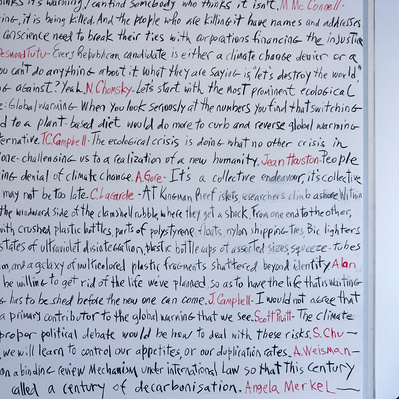 thinks it's warming, I can find somebody who thinks it isn't. M. Mc Connell-
ing, it is being killed. And the people who are killing it have names and addresses
conscience need to break their ties with corporations financing the injustice
Desmond Tutu - Every Republican candidate is either a climate change denier or a
ou can't do anything about it. What they are saying is, "let's destroy the world"
ng against? Yeah. N. Chomsky - Let's start with the most prominent ecological
e: Global warming. When you look seriously at the numbers you find that switching
d to a plant-based diet would do more to curb and reverse global warming
ternative. T.C. Campbell - The ecological crisis is doing what no other crisis in
one - challenging us to a realization of a new humanity. Jean Houston - People
ing denial of climate change. A. Gore - It's a collective endeavour, it's collective
may not be too late. C. Lagarde - At Kingman Reef islets, researchers climb ashore. Within
the windward side of the clamshell rubble, where they get a shock, from one end to the other,
with crushed plastic bottles, parts of polystyrene floats, nylon shipping ties, Bic lighters
states of ultraviolet disintegration, plastic bottle caps of assorted sizes, squeeze-tubes
m, and a galaxy of multicolored plastic fragments shattered beyond identity Alan
be willing to get rid of the life we've planned so as to have the life that is waiting
g has to be shed before the new one can come. J. Campbell - I would not agree that
a primary contributor to the global warming that we see. Scott Pruitt - The climate
proper political debate would be how to deal with these risks. S. Chu -
we will learn to control our appetites, or our duplication rates. A. Weisman -
on a binding review Mechanism under international Law so that this century
called a century of decarbonisation. Angela Merkel -